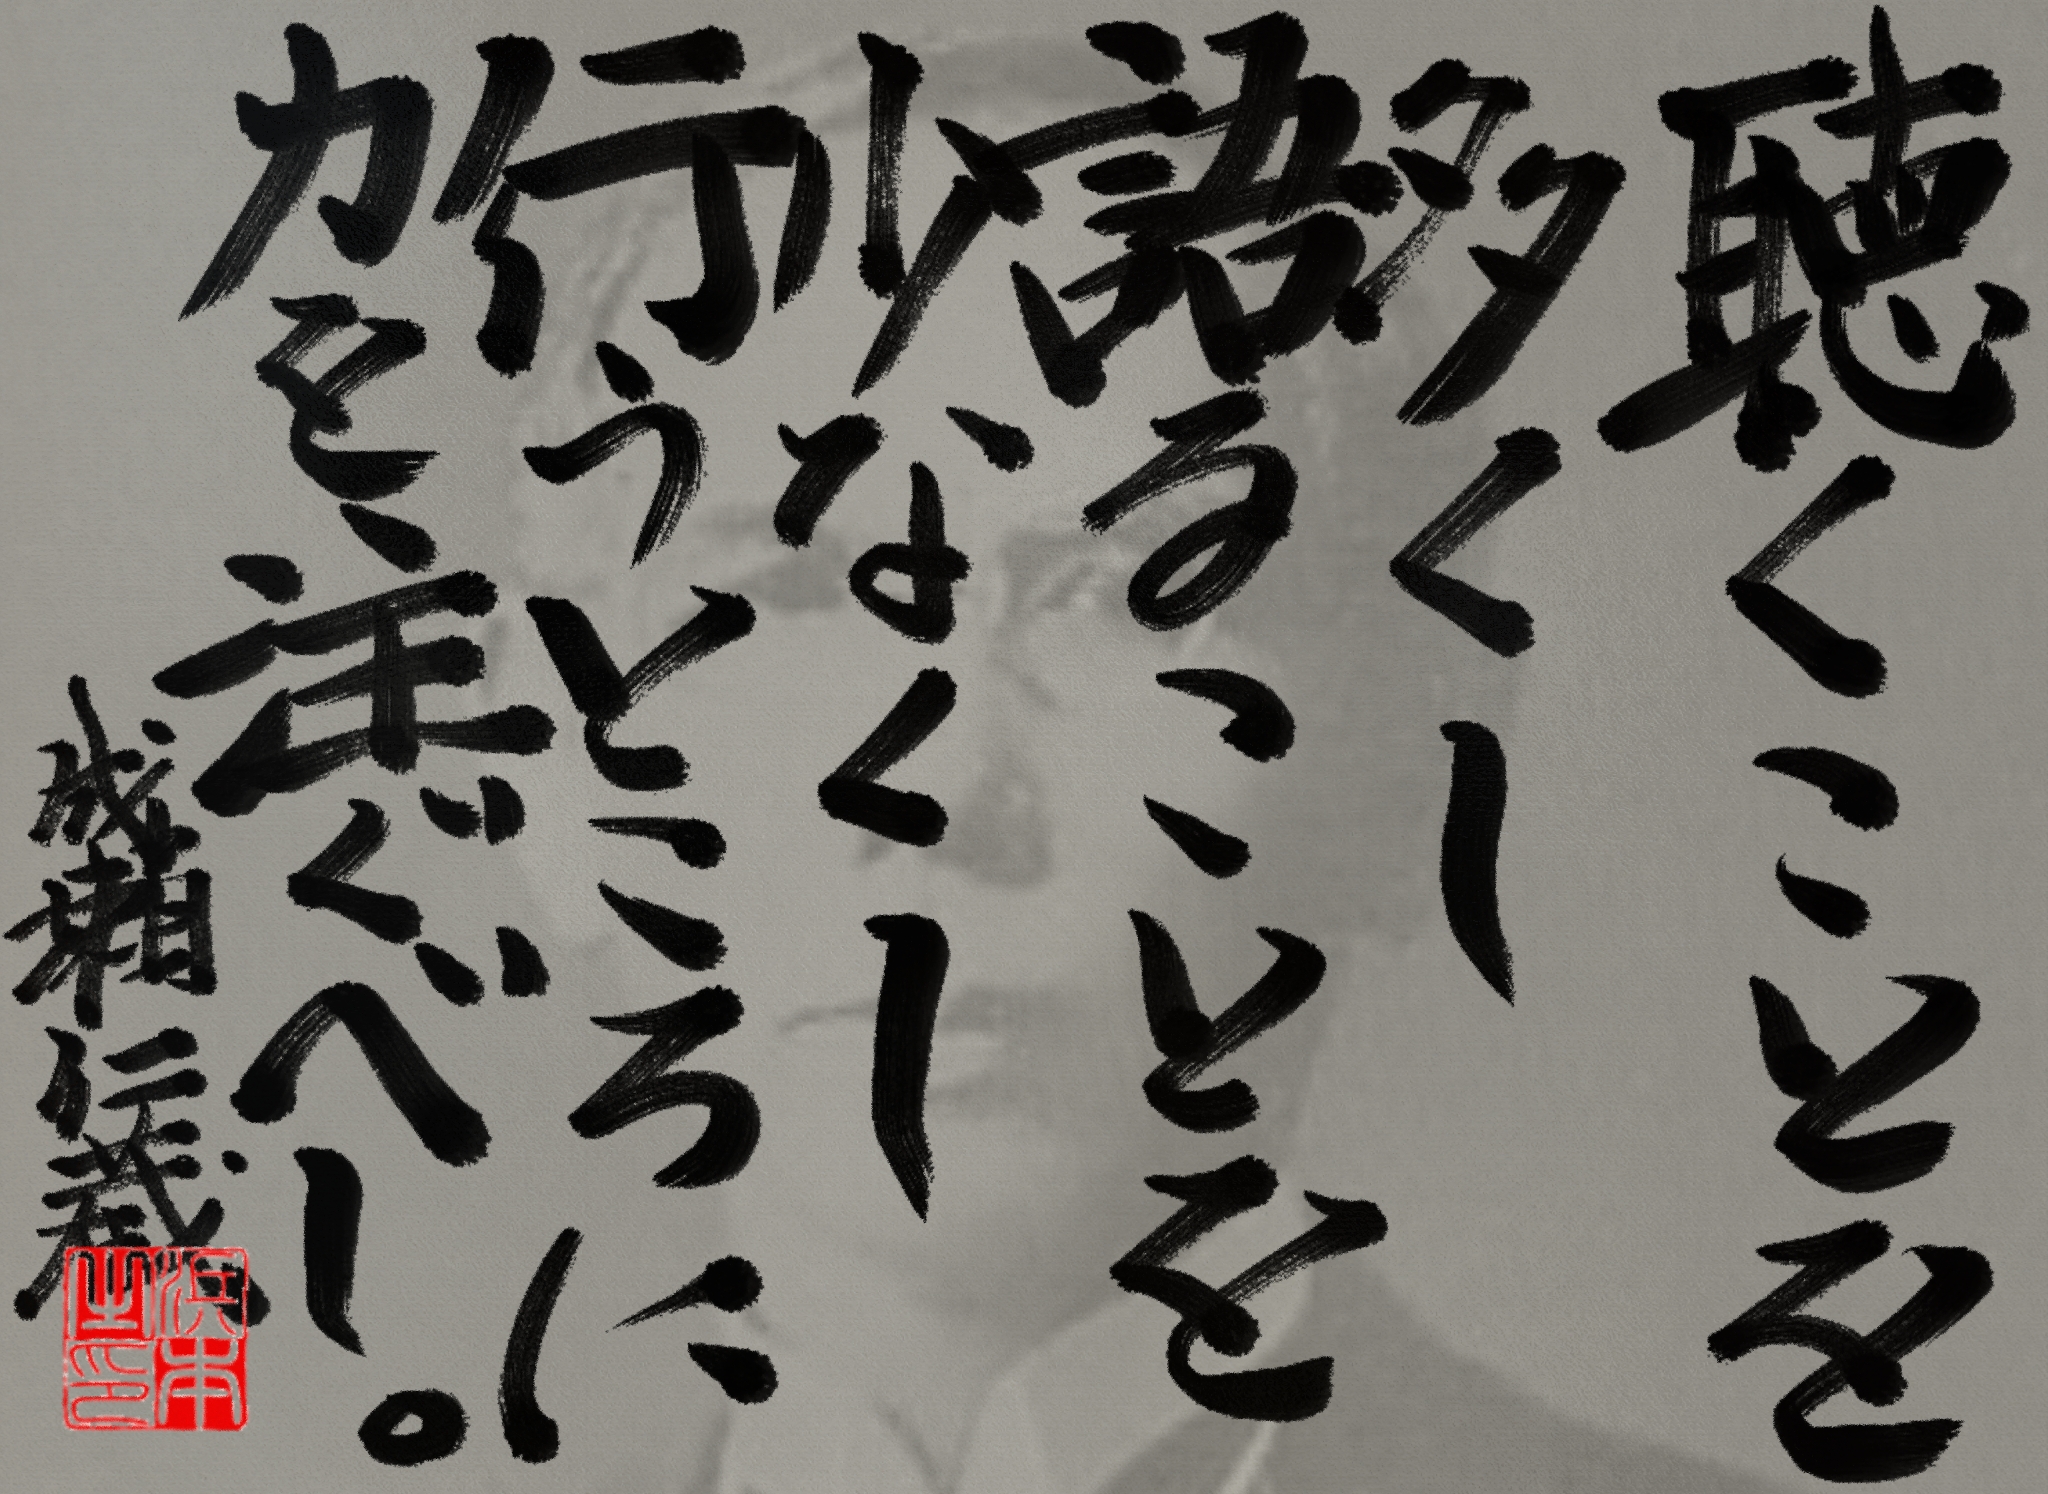 聴くことを
多くし
語ることを
少なくし
行うところに
力を注ぐべし。
成瀬仁蔵
浜本之印